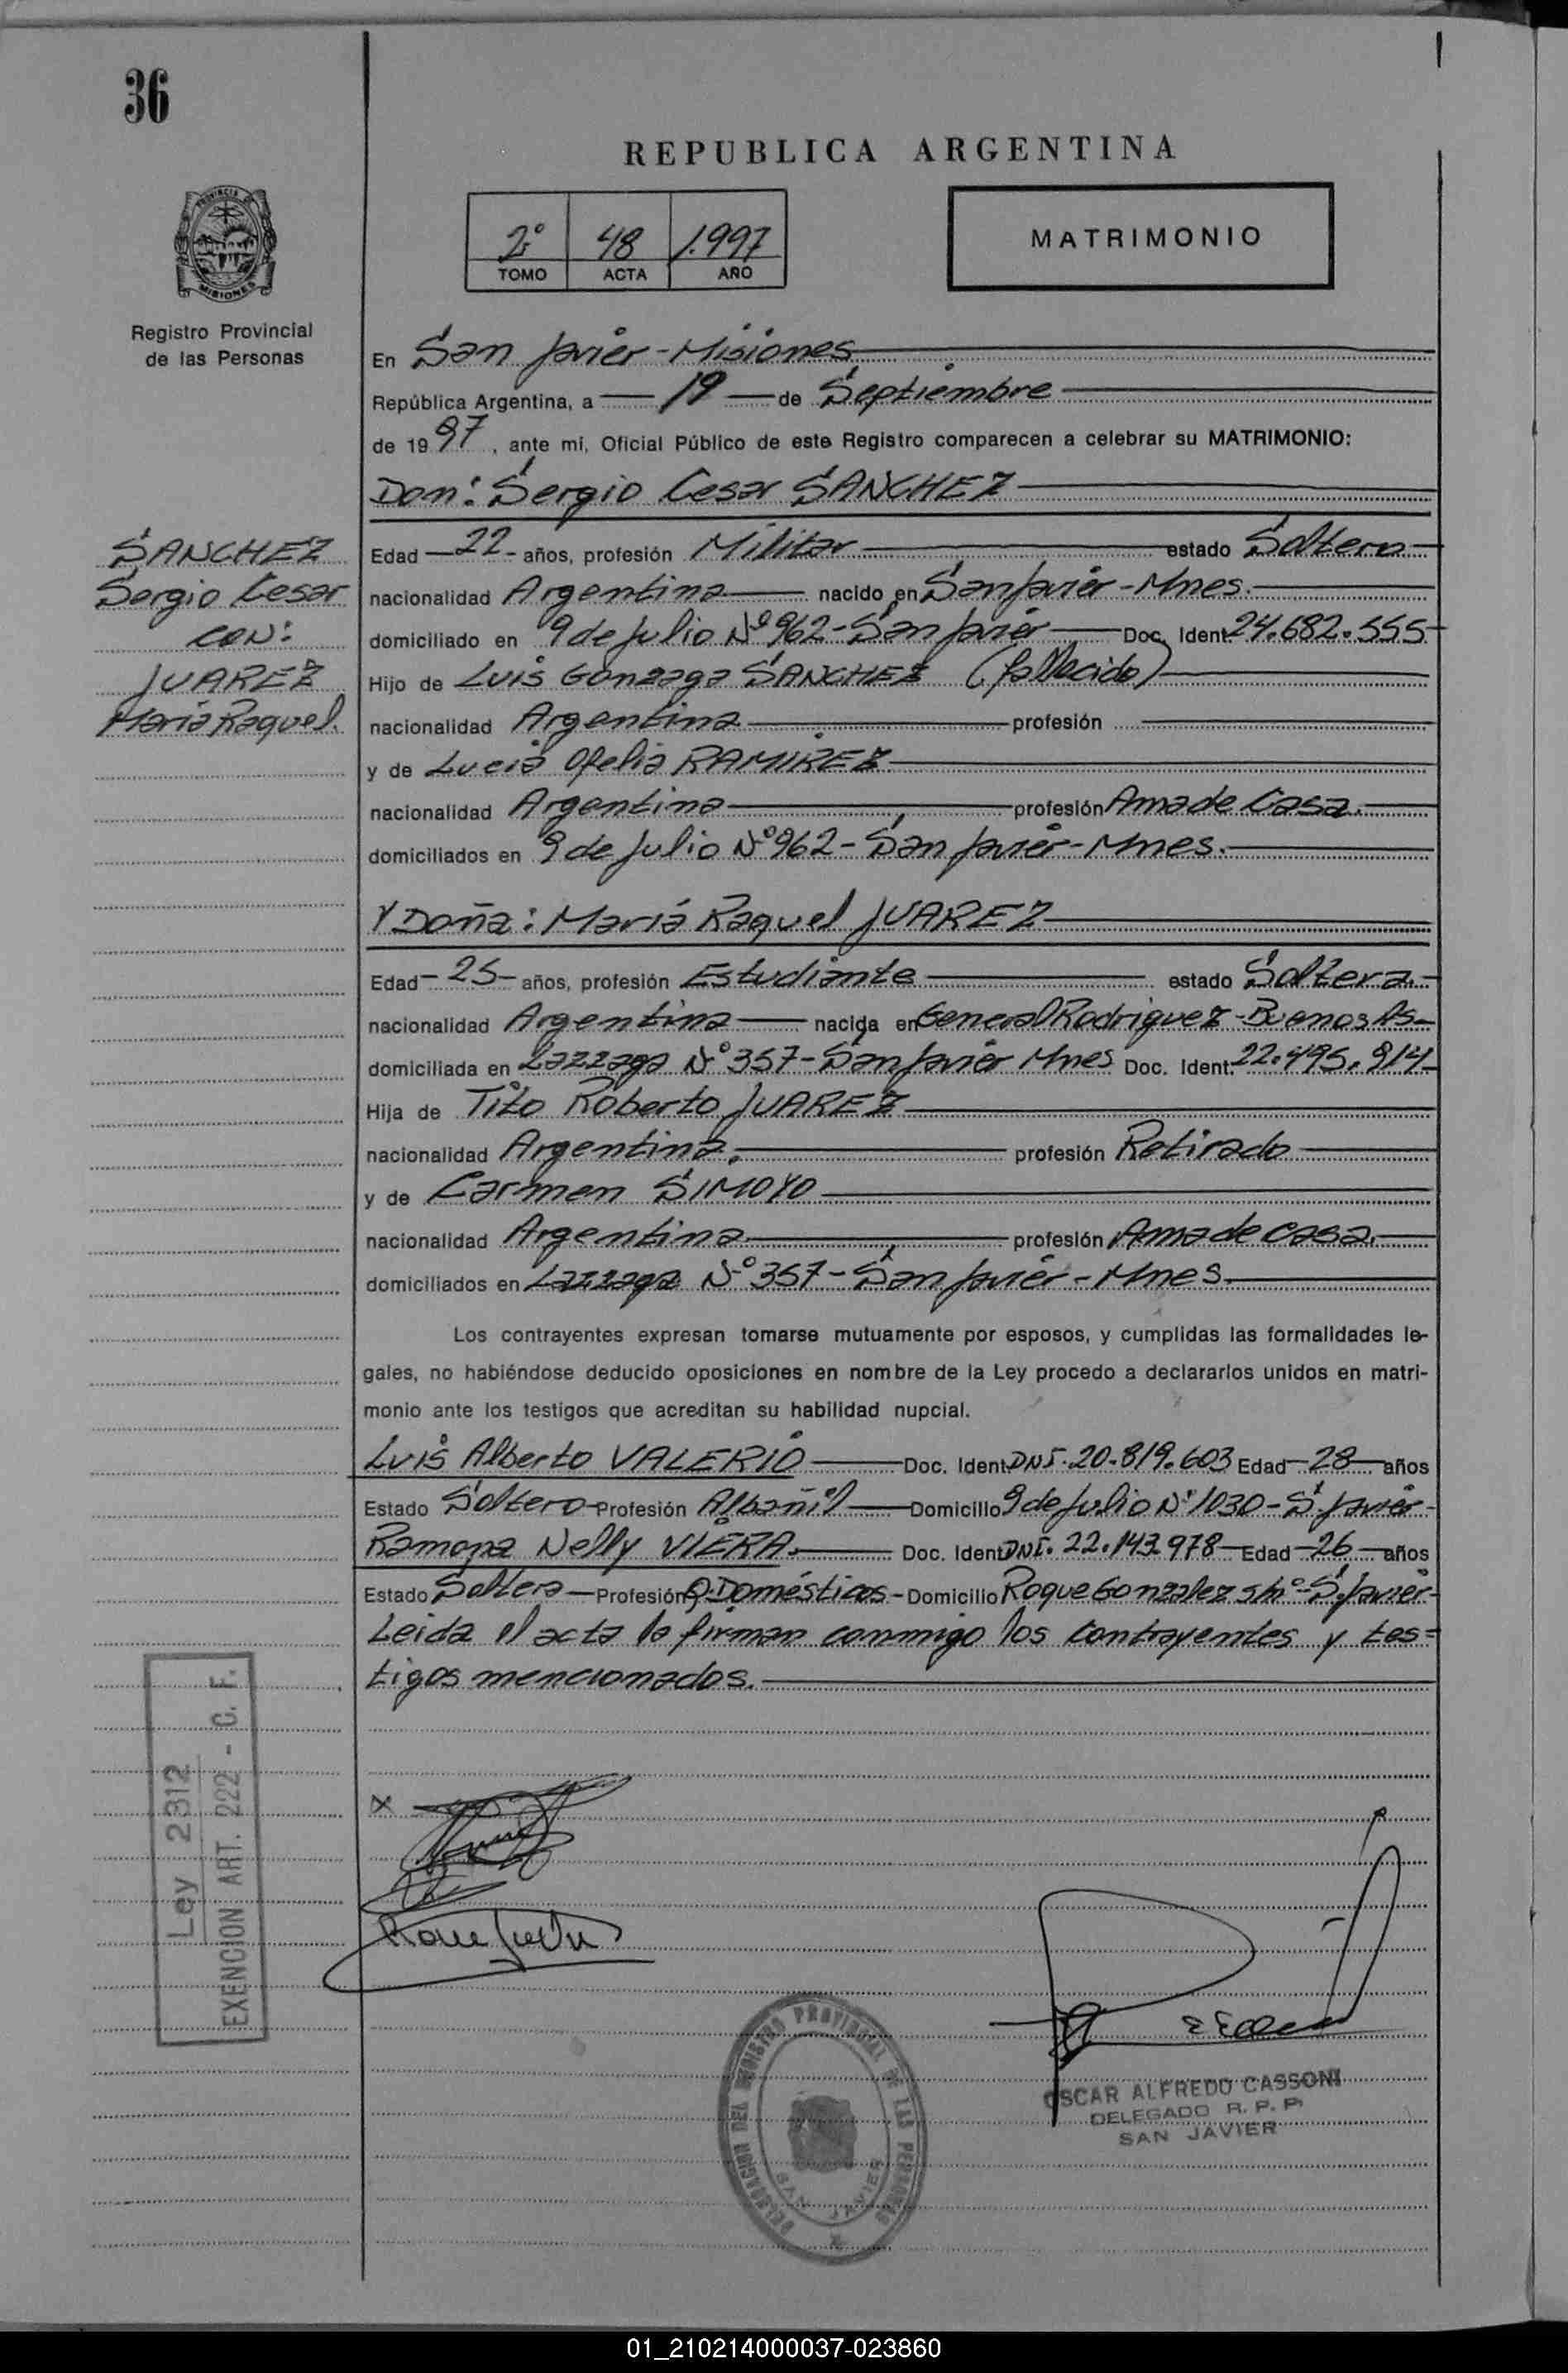 36
REPUBLICA ARGENTINA
2º 48 1.997
TOMO ACTA AÑO
MATRIMONIO
PROVINCIA DE
MISIONES
Registro Provincial
de las Personas
En San Javier - Misiones
República Argentina, a 19 de Septiembre
de 1997, ante mi, Oficial Público de este Registro comparecen a celebrar su MATRIMONIO:
Don: Sergio Cesar SANCHEZ
SANCHEZ
Sergio Cesar
CON:
JUAREZ
Maria Raquel.
Edad - 22 - años, profesión Militar estado Soltero
nacionalidad Argentina nacido en San Javier - Mnes.
domiciliado en 9 de Julio Nº 962 - San Javier Doc. Ident. 24.682.555
Hijo de Luis Gonzaga SANCHEZ (fallecido)
nacionalidad Argentina profesión
y de Lucia Ofelia RAMIREZ
nacionalidad Argentina profesión Ama de Casa.
domiciliados en 9 de Julio Nº 962 - San Javier - Mnes.
Y Doña: Maria Raquel JUAREZ
Edad - 25 - años, profesión Estudiante estado Soltera.
nacionalidad Argentina nacida en General Rodriguez - Buenos As
domiciliada en Nº 357 - San Javier Mnes Doc. Ident. 22.495.914
Hija de Tito Roberto JUAREZ
nacionalidad Argentina. profesión Retirado
y de Carmen SIMOYO
nacionalidad Argentina profesión Ama de casa.
domiciliados en Nº 357 - San Javier - Mnes.
Los contrayentes expresan tomarse mutuamente por esposos, y cumplidas las formalidades le-
gales, no habiéndose deducido oposiciones en nombre de la Ley procedo a declararlos unidos en matri-
monio ante los testigos que acreditan su habilidad nupcial.
Luis Alberto VALERIO Doc. Ident. DNI. 20.819.603 Edad 28 años
Estado Soltero Profesión Albañil Domicilio 9 de Julio Nº 1030 - S. Javier -
Ramona Nelly VIERA. Doc. Ident. DNI. 22.143.978 Edad 26 años
Estado Soltera Profesión Q. Domésticos - Domicilio Roque Gonzalez s/nº - S. Javier -
Leida el acta la firman conmigo los contrayentes y tes=
tigos mencionados.
Ley 2312
EXENCION ART. 222 - C. F.
X
DELEGACION DEL REGISTRO PROVINCIAL DE LAS PERSONAS
SAN JAVIER
OSCAR ALFREDO CASSONI
DELEGADO R. P. P.
SAN JAVIER
01_210214000037-023860